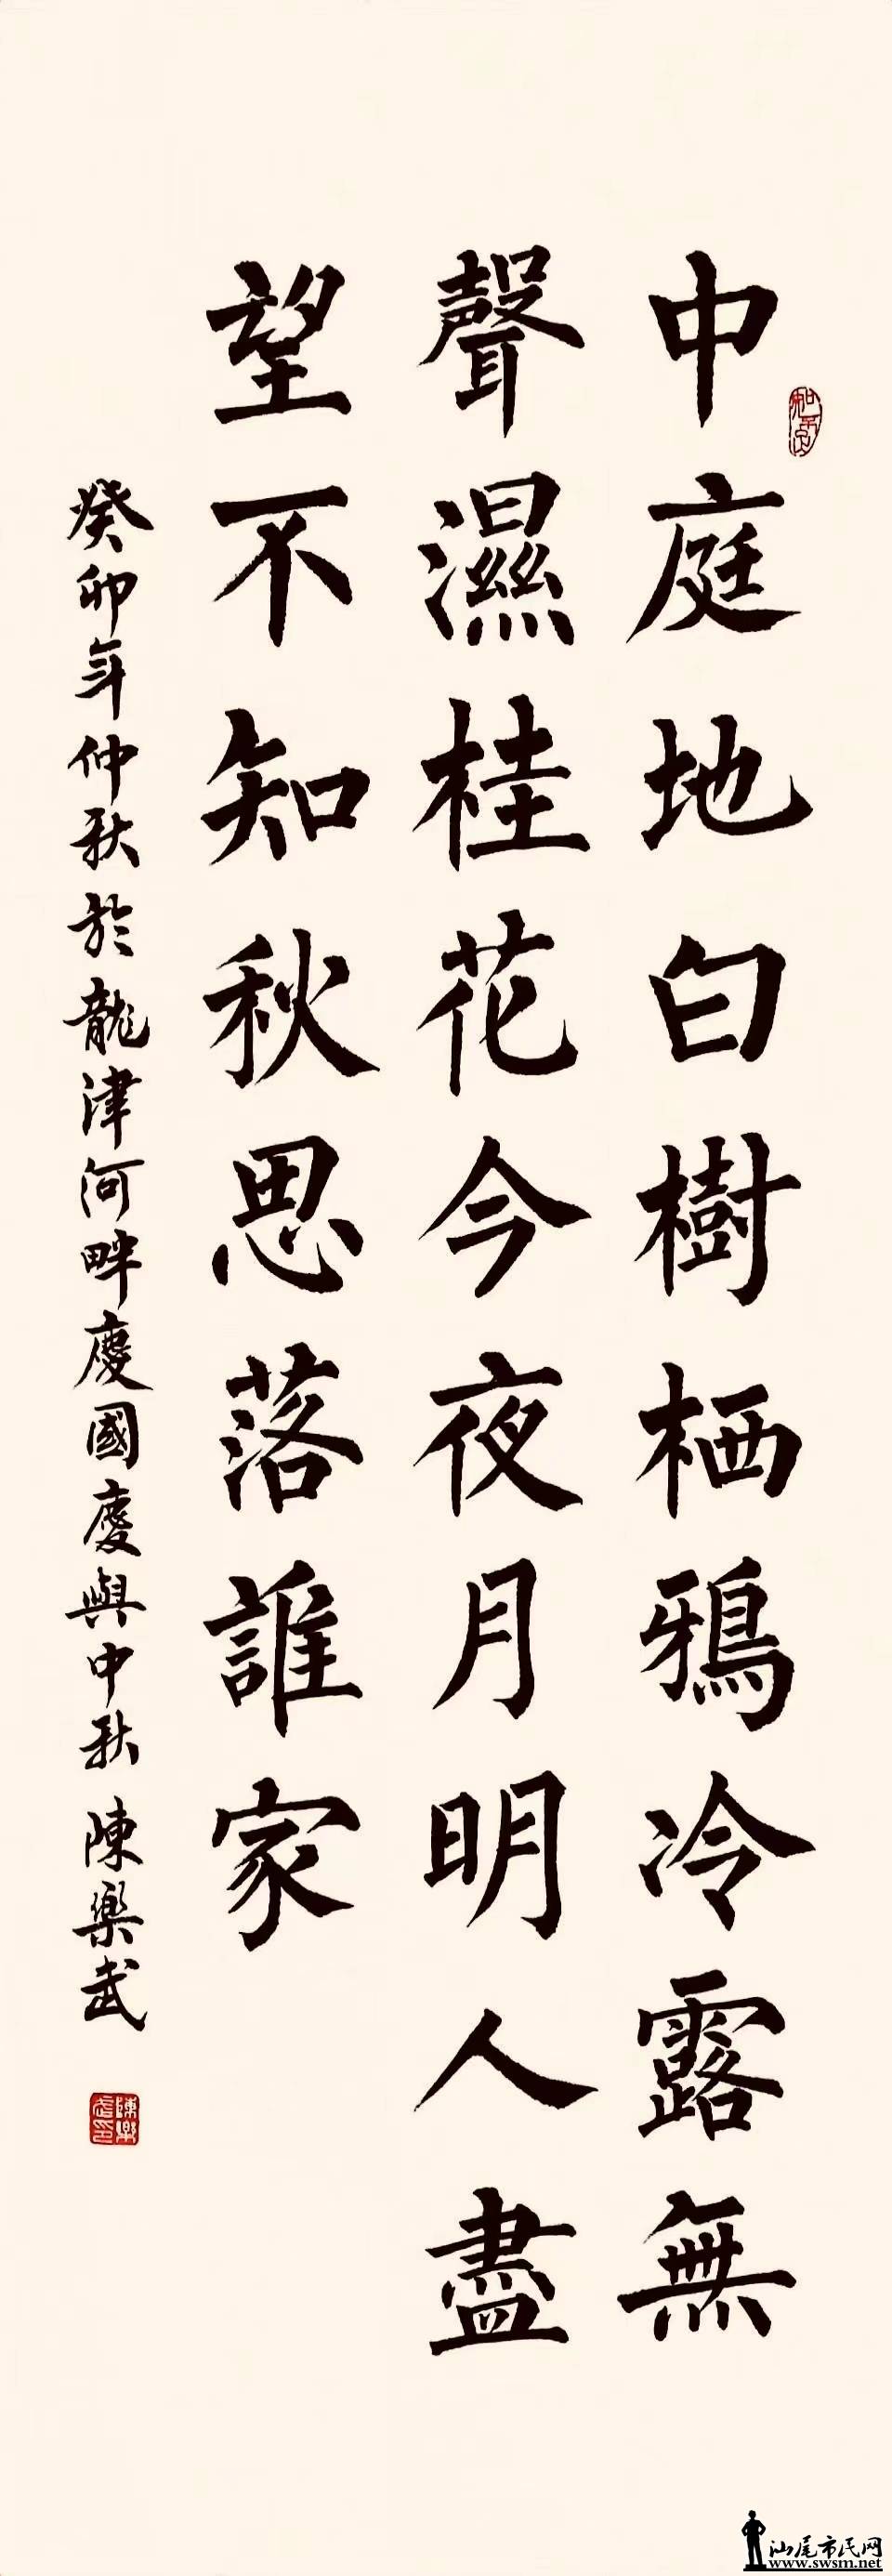 中庭地白樹栖鴉冷露無
聲濕桂花今夜月明人盡
望不知秋思落誰家
癸卯年仲秋於龍津河畔慶國慶與中秋 陳樂武
陳樂武印
汕尾市民网
www.swsm.net